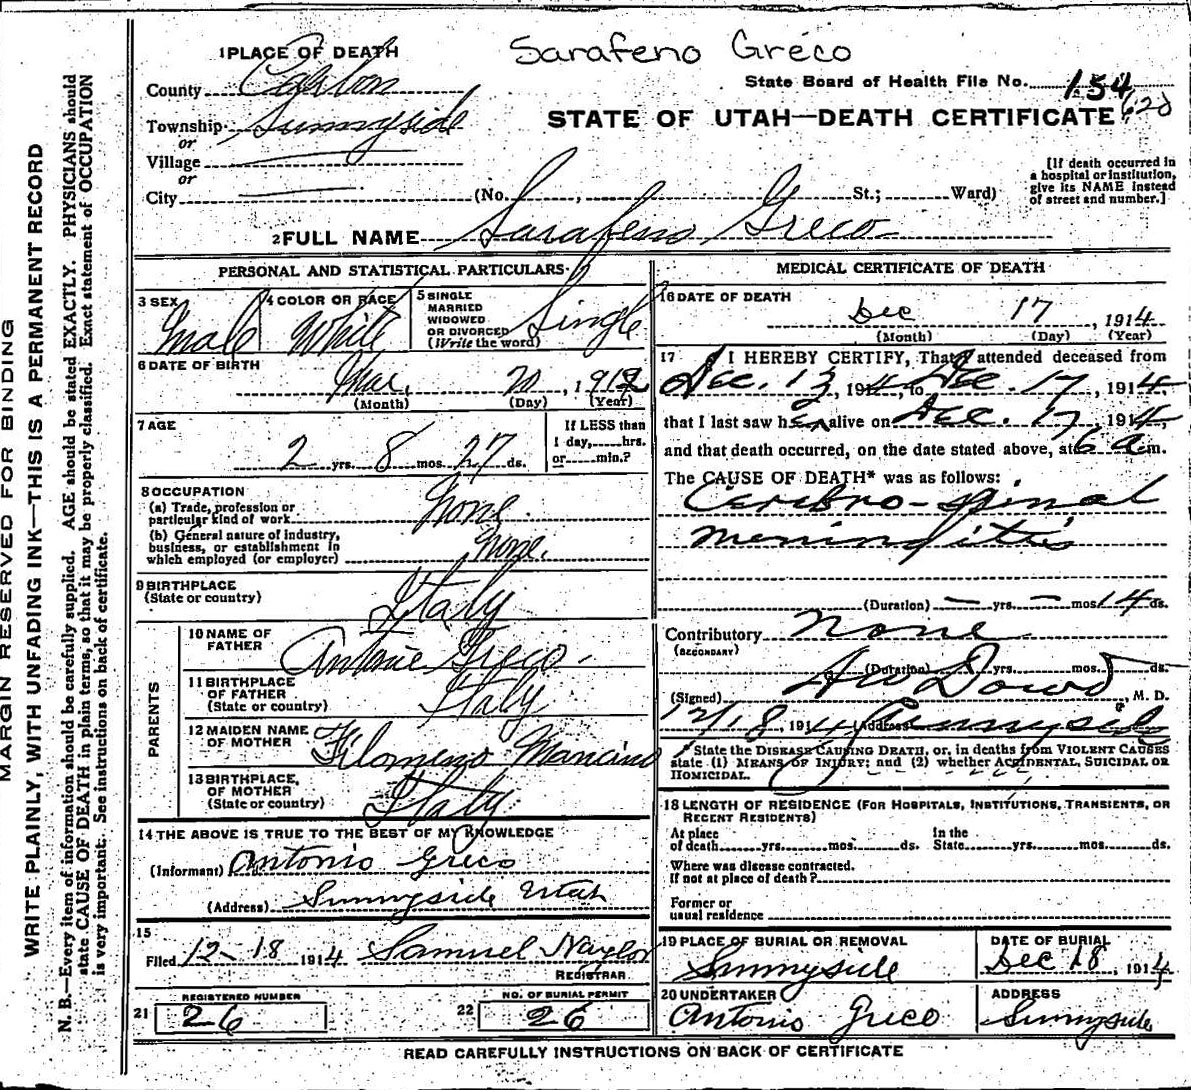 Sarafeno Greco
1 PLACE OF DEATH
State Board of Health File No. 154
County Carbon
620
STATE OF UTAH—DEATH CERTIFICATE
Township Sunnyside
or
Village
or
City
(No. , St.; Ward)
[If death occurred in
a hospital or institution,
give its NAME instead
of street and number.]
2 FULL NAME Sarafeno Greco
PERSONAL AND STATISTICAL PARTICULARS
3 SEX
Male
4 COLOR OR RACE
White
5 SINGLE
MARRIED
WIDOWED
OR DIVORCED
(Write the word)
Single
6 DATE OF BIRTH
Mar. 20, 1912
(Month) (Day) (Year)
7 AGE
2 yrs. 8 mos. 27 ds.
If LESS than
1 day, hrs.
or min.?
8 OCCUPATION
(a) Trade, profession or
particular kind of work None
(b) General nature of industry,
business, or establishment in
which employed (or employer) None.
9 BIRTHPLACE
(State or country) Italy
PARENTS
10 NAME OF
FATHER Antonie Greco
11 BIRTHPLACE
OF FATHER
(State or country) Italy
12 MAIDEN NAME
OF MOTHER Filomeno Mancino
13 BIRTHPLACE
OF MOTHER
(State or country) Italy
14 THE ABOVE IS TRUE TO THE BEST OF MY KNOWLEDGE
(Informant) Antonio Greco
(Address) Sunnyside Utah
15
Filed 12-18 1914 Samuel Naylor
REGISTRAR
21 REGISTERED NUMBER
26
22 NO. OF BURIAL PERMIT
26
MEDICAL CERTIFICATE OF DEATH
16 DATE OF DEATH
Dec 17, 1914
(Month) (Day) (Year)
17 I HEREBY CERTIFY, That I attended deceased from
Dec. 13, 1914, to Dec. 17, 1914,
that I last saw h alive on Dec. 17, 1914,
and that death occurred, on the date stated above, at 6 a.m.
The CAUSE OF DEATH* was as follows:
Cerebro-spinal
meningittis
(Duration) — yrs. — mos. 14 ds.
Contributory None
(SECONDARY)
(Duration) yrs. mos. ds.
(Signed) AW Dowd, M. D.
12/18, 1914 (Address) Sunnyside
* State the DISEASE CAUSING DEATH, or, in deaths from VIOLENT CAUSES
state (1) MEANS OF INJURY; and (2) whether ACCIDENTAL, SUICIDAL OR
HOMICIDAL.
18 LENGTH OF RESIDENCE (FOR HOSPITALS, INSTITUTIONS, TRANSIENTS, OR
RECENT RESIDENTS)
At place
of death yrs. mos. ds.
In the
State yrs. mos. ds.
Where was disease contracted.
If not at place of death?
Former or
usual residence
19 PLACE OF BURIAL OR REMOVAL
Sunnyside
DATE OF BURIAL
Dec 18, 1914
20 UNDERTAKER
Antonio Greco
ADDRESS
Sunnyside
READ CAREFULLY INSTRUCTIONS ON BACK OF CERTIFICATE
MARGIN RESERVED FOR BINDING
WRITE PLAINLY, WITH UNFADING INK—THIS IS A PERMANENT RECORD
N. B.—Every item of information should be carefully supplied. AGE should be stated EXACTLY. PHYSICIANS should
state CAUSE OF DEATH in plain terms, so that it may be properly classified. Exact statement of OCCUPATION
is very important. See instructions on back of certificate.